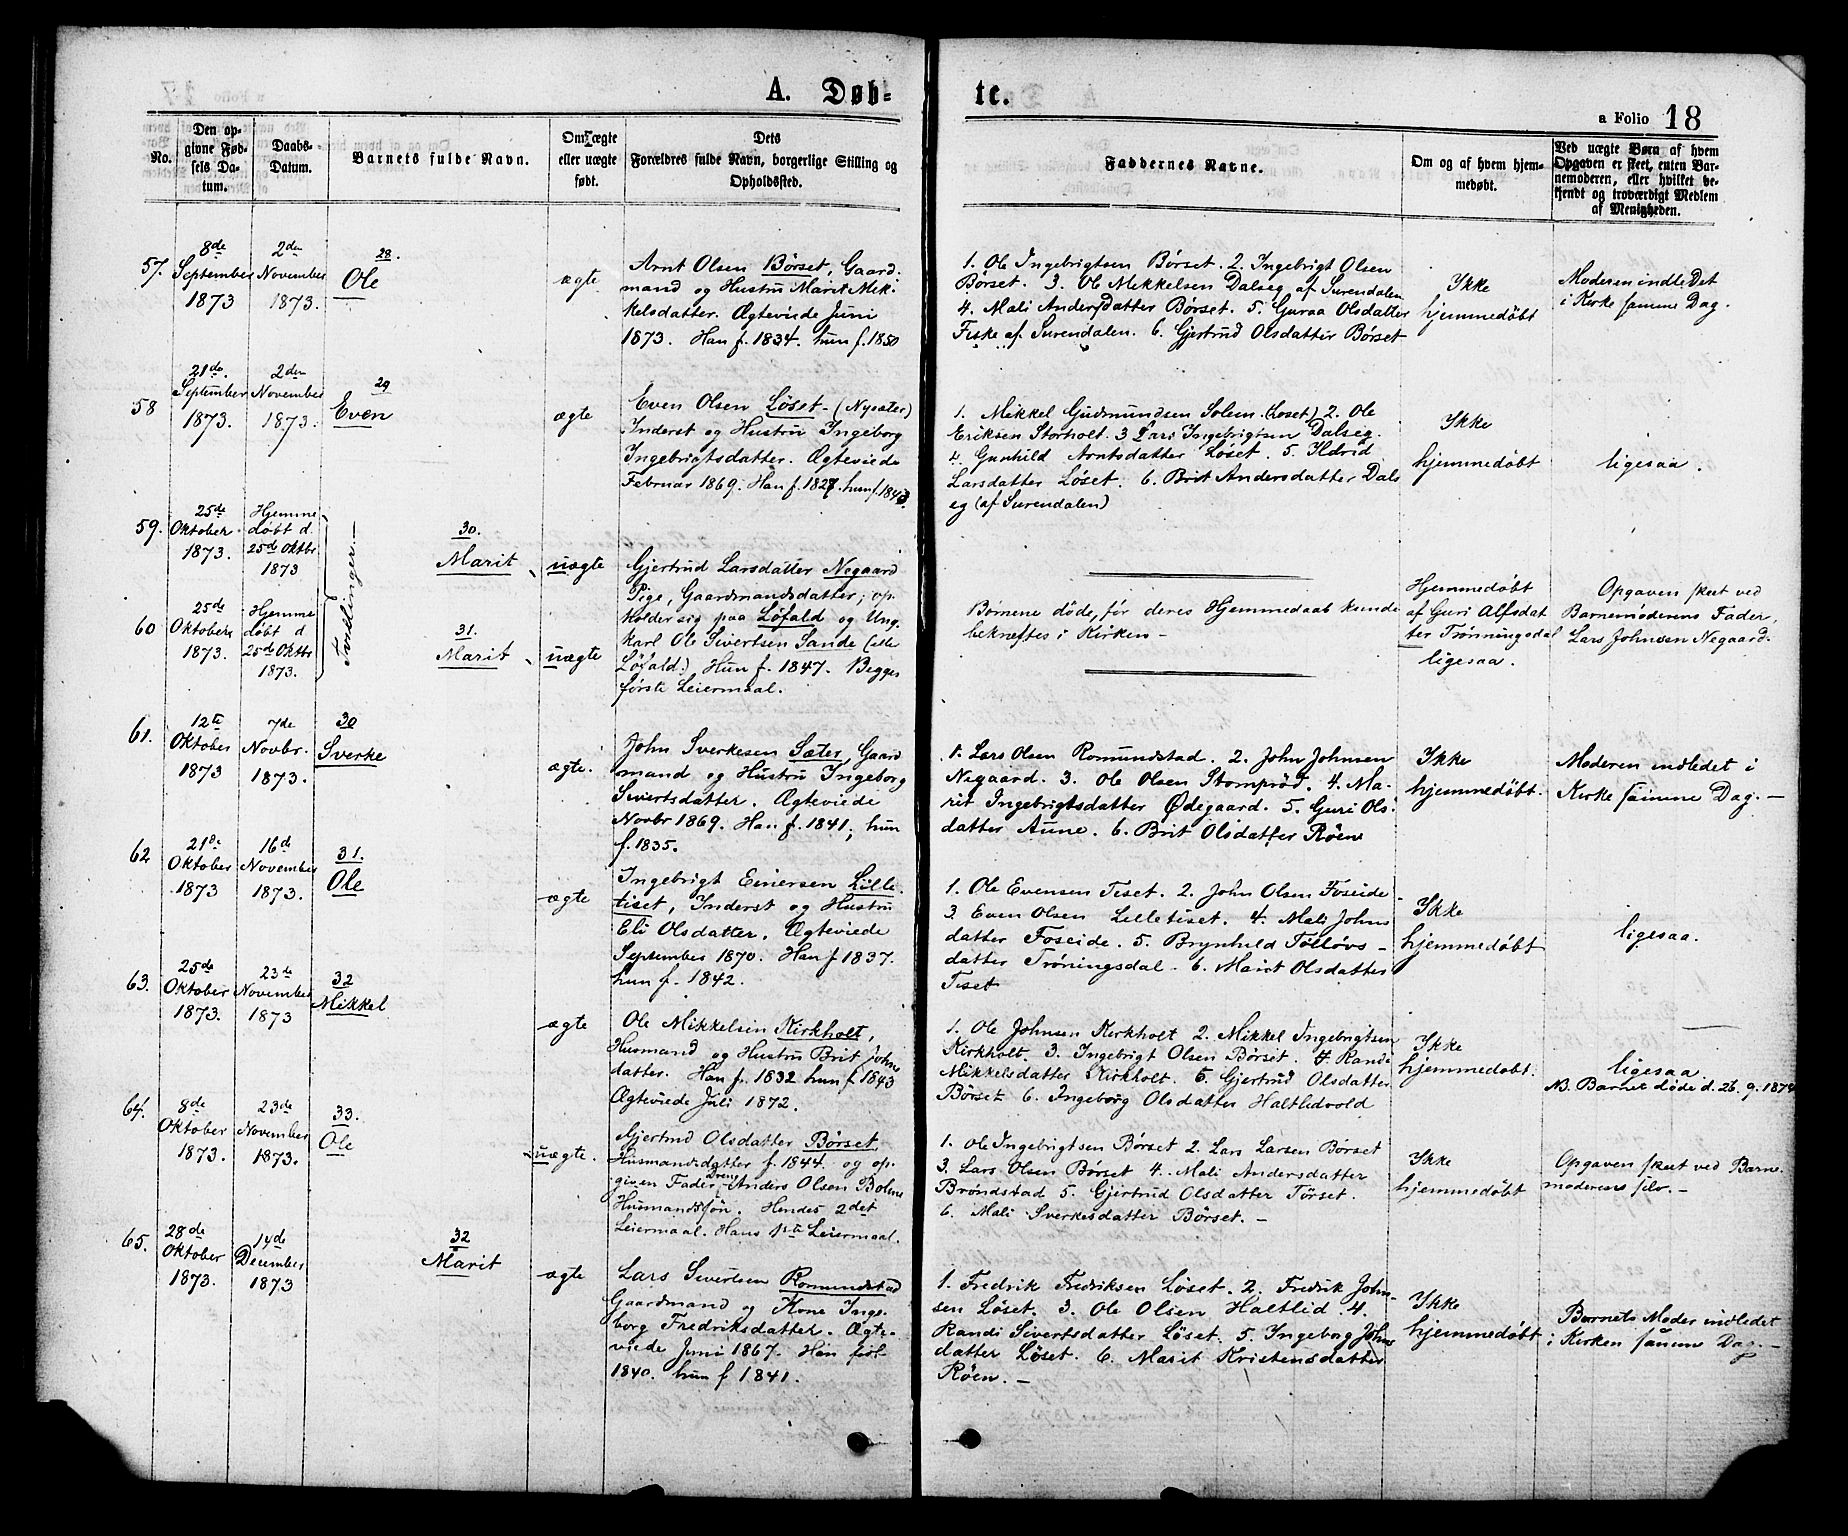 A. Døb-
te.
a Folio 18
No.
Den op-
givne Fød-
sels Da-
tum.
Daabs-
Datum.
Barnets fulde Navn.
Om ægte
eller uægte
født.
Dets
Forældres fulde Navn, borgerlige Stilling og
Opholdssted.
Faddernes Navne.
Om og af hvem hjem-
medøbt.
Ved uægte Børn af hvem
Opgaven er skeet, enten Bar-
nemoderen, eller hvilket be-
kjendt og troværdigt Medlem
af Menigheden.
57.
8de
September
1873
2den
November
1873.
28.
Ole
ægte
Arnt Olsen Børset, Gaard-
mand og Hustru Marit Mik-
kelsdatter. Ægteviede Juni
1873. Han f. 1834. hun f. 1850
1. Ole Ingebrigtsen Børset. 2. Ingebrigt Olsen
Børset. 3. Ole Mikkelsen Dalseg af Surendalen
4. Mali Andersdatter Børset. 5. Guraa Olsdatter
Fiske af Surendalen. 6. Gjertrud Olsdatter Børset
Ikke
hjemmedøbt
Moderen indledet
i Kirke samme Dag.
58
21de.
September
1873.
2den
November
1873.
29
Even
ægte
Even Olsen Løset - (Nysæter)
Inderst og Hustru Ingeborg
Ingebrigtsdatter. Ægteviede
Februar 1869. Han f. 1827. hun f. 1843.
1. Mikkel Gudmundsen Solem (Løset) 2. Ole
Eriksen Storholt. 3 Lars Ingebrigtsen Dalseg.
4. Gunhild Arntsdatter Løset. 5. Ildrid
Larsdatter Løset. 6. Brit Andersdatter Dals
eg (af Surendalen)
Ikke
hjemmedøbt
ligesaa.
59.
25de
Oktober
1873.
Hjemme
døbt d.
25de Oktbr
1873
Tvillinger.
30.
Marit
uægte
Gjertrud Larsdatter Negaard
Pige, Gaardmandsdatter, op-
holder sig paa Løfald og Ung-
karl Ole Sivertsen Sande (elle
Løfald.) Hun f. 1847. Begges
første Leiermaal.
Børnene døde, før deres Hjemmedaab kunde
bekræftes i Kirken -
Hjemmedøbt
af Guri Alfsdat
ter Trønningsdal
ligesaa.
Opgaven skeet ved
Barnemoderens Fader,
Lars Johnsen Negaard.
60
25de
Oktober
1873.
Hjemme
døbt d
25de Oktbr
1873.
31.
Marit
uægte
61.
12te
Oktober
1873
7de
Novbr.
1873.
30
Sverke
ægte.
John Sverkesen Sæter, Gaard
mand og Hustru Ingeborg
Sivertsdatter. Ægteviede
Novbr 1869. Han f. 1841, hun
f. 1835.
1. Lars Olsen Romundstad. 2. John Johnsen
Negaard. 3. Ole Olsen Stomprød. 4. Ma-
rit Ingebrigtsdatter Ødegaard. 5. Guri Ols-
datter Aune. 6. Brit Olsdatter Røen
Ikke
hjemmedøbt.
Moderen indledet i
Kirke samme Dag. -
62
21de
Oktober
1873
16de
November
1873.
31.
Ole
ægte
Ingebrigt Einersen Lille-
tiset, Inderst og Hustru
Eli Olsdatter. Ægteviede
September 1870. Han f 1837.
hun f. 1842.
1. Ole Evensen Tiset. 2. John Olsen Foseide
3. Even Olsen Lilletiset. 4. Mali Johns
datter Foseide. 5. Brynhild Tølløvs -
datter Trøningsdal - 6. Marit Olsdatter
Tiset
Ikke
hjemmedøbt
ligesaa.
63.
25de
Oktober
1873.
23de
November
1873
32
Mikkel
ægte
Ole Mikkelsen Kirkholt,
Husmand og Hustru Brit Johns
datter. Han f. 1832 hun f 1843
Ægteviede Juli 1872.
1. Ole Johnsen Kirkholt 2. Mikkel Ingebrigtsen
Kirkholt. 3. Ingebrigt Olsen Børset. 4. Randi
Mikkelsdatter Kirkholt. 5. Gjertrud Olsdatter
Børset 6. Ingeborg Olsdatter Haltlidvold
Ikke
hjemmedøbt.
ligesaa.
NB. Barnet døde d. 26. 9. 1874
64.
8de
Oktober
1873.
23de
November
1873.
33.
Ole
uægte.
Gjertrud Olsdatter Børset
Husmandsdatter f. 1844. og op-
given Fader Dreng Anders Olsen Bolme
Husmandssøn. Hendes 2det
Leiermaal. Hans 1ste Leiermaal.
1. Ole Ingebrigtsen Børset 2. Lars Larsen Børset
3. Lars Olsen Børset 4. Mali Andersdatter
Brøndstad 5. Gjertrud Olsdatter Tørset.
6. Mali Sverkesdatter Børset. -
Ikke
hjemmedøbt
Opgaven skeet ved Barne-
moderens selv. -
65.
28de
Oktober
1873.
14de
December
1873
32
Marit
ægte
Lars Sivertsen Romundstad
Gaardmand og Kone Inge-
borg Fredriksdatter. Ægte-
viede Juni 1867. Han født
1840. hun f 1841.
1. Fredrik Fredriksen Løset. 2. Fredrik John-
sen Løset. 3. Ole Olsen Haltlid. 4.
Randi Sivertsdatter Løset. 5. Ingeborg Johns
datter Løset. 6. Marit Kristensdatter
Røen. -
Ikke
hjemmedøbt
Barnets Moder indledet
i Kirken samme Dag. -